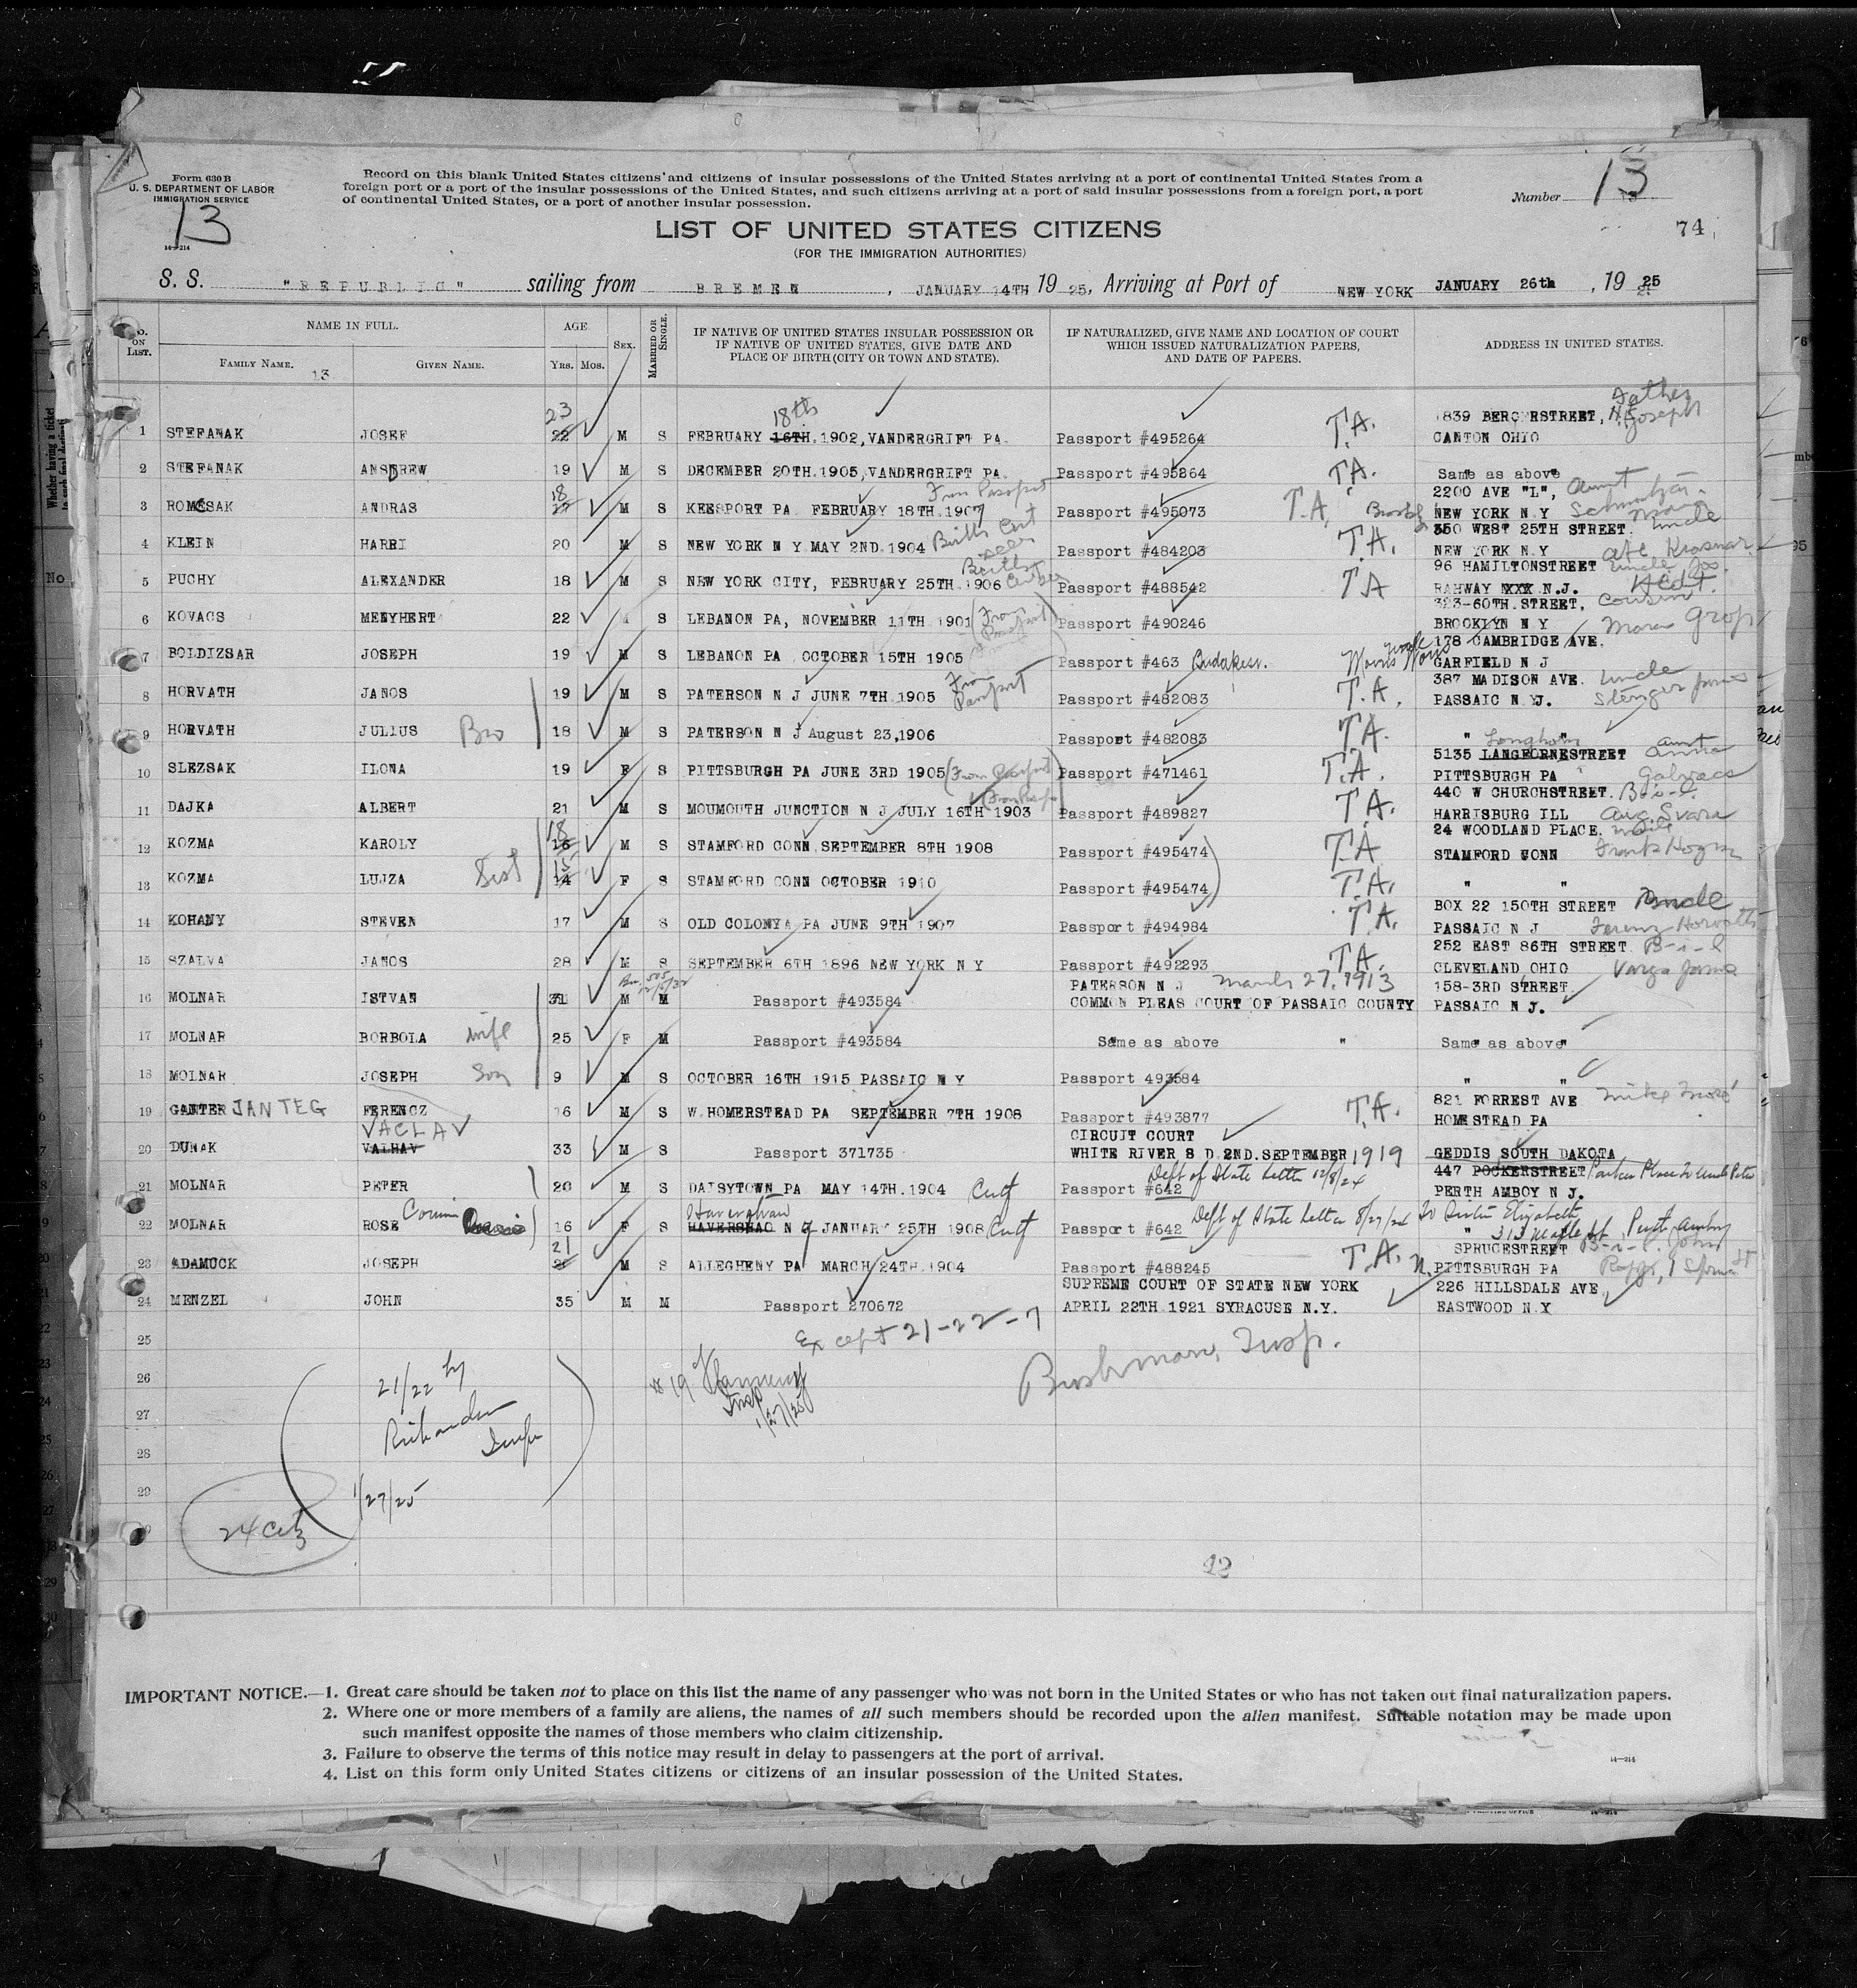 Form 630 B
U. S. DEPARTMENT OF LABOR
IMMIGRATION SERVICE
13
14—214
Record on this blank United States citizens and citizens of insular possessions of the United States arriving at a port of continental United States from a
foreign port or a port of the insular possessions of the United States, and such citizens arriving at a port of said insular possessions from a foreign port, a port
of continental United States, or a port of another insular possession.
Number 13
74
LIST OF UNITED STATES CITIZENS
(FOR THE IMMIGRATION AUTHORITIES)
S. S. "REPUBLIC" sailing from BREMEN, JANUARY 14TH 1925, Arriving at Port of NEW YORK JANUARY 26th, 1925
No. ON LIST.
NAME IN FULL.
FAMILY NAME. 13
GIVEN NAME.
AGE
YRS. MOS.
SEX.
MARRIED OR SINGLE.
IF NATIVE OF UNITED STATES INSULAR POSSESSION OR
IF NATIVE OF UNITED STATES, GIVE DATE AND
PLACE OF BIRTH (CITY OR TOWN AND STATE).
IF NATURALIZED, GIVE NAME AND LOCATION OF COURT
WHICH ISSUED NATURALIZATION PAPERS,
AND DATE OF PAPERS.
ADDRESS IN UNITED STATES.
23 18th Father
1839 BERGERSTREET, Joseph
1 STEFANAK JOSEF 22 M S FEBRUARY 16TH.1902,VANDERGRIFT PA. Passport #495264 T.A. CANTON OHIO
2 STEFANAK ANSDREW 19 M S DECEMBER 20TH.1905,VANDERGRIFT PA. Passport #495264 T.A. Same as above
18 From Passport 2200 AVE "L", Aunt
3 ROMCSAK ANDRAS 17 M S KEESPORT PA FEBRUARY 18TH.1907 Passport #495073 T.A. NEW YORK N Y
Birth Cert seen 350 WEST 25TH STREET. Uncle
4 KLEIN HARRI 20 M S NEW YORK N Y MAY 2ND.1904 Passport #484203 T.A. NEW YORK N.Y
Birth 96 HAMILTONSTREET Uncle Jos.
5 PUCHY ALEXANDER 18 M S NEW YORK CITY, FEBRUARY 25TH.1906 Passport #488542 T.A RAHWAY XXX N.J.
323-60TH.STREET, Cousin
6 KOVACS MENYHERT 22 S LEBANON PA, NOVEMBER 11TH 1901 (From Passport) Passport #490246 BROOKLYN N Y
178 CAMBRIDGE AVE.
7 BOLDIZSAR JOSEPH 19 M S LEBANON PA OCTOBER 15TH 1905 Passport #463 Budapest. GARFIELD N J
From Passport 387 MADISON AVE. Uncle
8 HORVATH JANOS 19 M S PATERSON N J JUNE 7TH.1905 Passport #482083 T.A. PASSAIC N YJ.
9 HORVATH JULIUS Bro 18 M S PATERSON N J August 23,1906 Passport #482083 T.A. " "
5135 LANGFORNESTREET Aunt Anna
10 SLEZSAK ILONA 19 F S PITTSBURGH PA JUNE 3RD 1905 (From Passport) Passport #471461 T.A. PITTSBURGH PA
440 W CHURCHSTREET. B-i-l.
11 DAJKA ALBERT 21 M S MOUMOUTH JUNCTION N J JULY 16TH 1903 Passport #489827 T.A. HARRISBURG ILL
18 24 WOODLAND PLACE.
12 KOZMA KAROLY 16 M S STAMFORD CONN.SEPTEMBER 8TH 1908 Passport #495474 T.A STAMFORD CONN
15
13 KOZMA LUJZA Sist 14 F S STAMFORD CONN OCTOBER 1910 Passport #495474 T.A. " "
BOX 22 150TH STREET Uncle
14 KOHANY STEVEN 17 M S OLD COLONYA PA JUNE 9TH 1907 Passport #494984 T.A. PASSAIC N J Ferenz Horvath
252 EAST 86TH STREET. B-i-l
15 SZALVA JANOS 28 M S SEPTEMBER 6TH 1896 NEW YORK N Y Passport #492293 T.A. CLEVELAND OHIO Varga
PATERSON N J March 27, 1913 158-3RD STREET.
16 MOLNAR ISTVAN 31 M M Passport #493584 COMMON PLEAS COURT OF PASSAIC COUNTY PASSAIC N J.
17 MOLNAR BORBOLA wife 25 F M Passport #493584 Same as above " Same as above"
18 MOLNAR JOSEPH Son 9 M S OCTOBER 16TH 1915 PASSAIC N Y Passport 493584 " "
821 FORREST AVE
19 GANTER JANTEG FERENCZ 16 M S W.HOMERSTEAD PA SEPTEMBER 7TH 1908 Passport #493877 T.A. HOMESTEAD PA
VACLAV CIRCUIT COURT
20 DUNAK VALHAV 33 M S Passport 371735 WHITE RIVER S D.2ND.SEPTEMBER 1919 GEDDIS SOUTH DAKOTA
Dept of State Letter 12/8/24 447 POCKERSTREET
21 MOLNAR PETER 20 M S DAISYTOWN PA MAY 14TH.1904 Passport #642 PERTH AMBOY N J.
22 MOLNAR ROSE Cousin 16 F S HAVERSHAO N Y JANUARY 25TH 1908 Passport #642 Dept of State Letter 8/27/24 " 313 Maple St Perth Amboy
21 SPRUCESTREET B-i-l. John
23 ADAMUCK JOSEPH 2 M S ALLEGHENY PA MARCH 24TH.1904 Passport #488245 T.A. N. PITTSBURGH PA
SUPREME COURT OF STATE NEW YORK 226 HILLSDALE AVE.
24 MENZEL JOHN 35 M M Passport 270672 APRIL 22TH.1921 SYRACUSE N.Y. EASTWOOD N.Y
25 Except 21-22-7
26 21/22 by # 19 Insp 1/27/25 Bushman, Insp.
27 Richardson
28 Insp
29 1/27/25
24 Citz
12
IMPORTANT NOTICE.—1. Great care should be taken not to place on this list the name of any passenger who was not born in the United States or who has not taken out final naturalization papers.
2. Where one or more members of a family are aliens, the names of all such members should be recorded upon the alien manifest. Suitable notation may be made upon
such manifest opposite the names of those members who claim citizenship.
3. Failure to observe the terms of this notice may result in delay to passengers at the port of arrival.
4. List on this form only United States citizens or citizens of an insular possession of the United States.
14—214